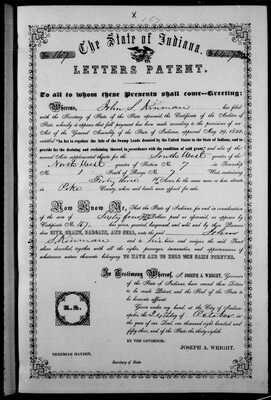 The State of Indiana.
LETTERS PATENT.
To all to whom these Presents shall come—Greeting:
Whereas, John S. Kinman has filed
with the Secretary of State of the State aforesaid the Certificate of the Auditor of
State, whereby it appears that full payment has been made according to the provisions of an
Act of the General Assembly of the State of Indiana, approved May 29, 1852,
entitled "An Act to regulate the Sale of the Swamp Lands donated by the United States to the State of Indiana, and to
provide for the draining and reclaiming thereof in accordance with the condition of said grant," and also of the
several Acts supplemental thereto for the South West quarter of the
North West quarter of Section No. in Township
No. 1 South of Range No. 7 West containing
Forty three Acres be the same more or less situate
in Pike County, where said lands are offered for sale.
Now Know Ye, That the State of Indiana, for and in consideration
of the sum of Dollars paid as aforesaid, as appears by
Certificate No. has given, granted, bargained and sold and by these Presents
does GIVE, GRANT, BARGAIN, AND SELL, unto the said John
S Kinman and to his heirs and assigns the said Tract
above described together with all the rights, privileges, immunities, and appurtenances of
whatsoever nature thereunto belonging TO HAVE AND TO HOLD THE SAME FOREVER.
In Testimony Whereof, I, JOSEPH A. WRIGHT, Governor
of the State of Indiana, have caused these Letters
to be made Patent, and the Seal of the State to
be hereunto affixed.
Given under my hand, at the City of Indian-
apolis, the day of October in the
year of our Lord, one thousand eight hundred and
fifty three, and of the State the thirty-eighth.
BY THE GOVERNOR,
JOSEPH A. WRIGHT.
NEHEMIAH HAYDEN,
Secretary of State